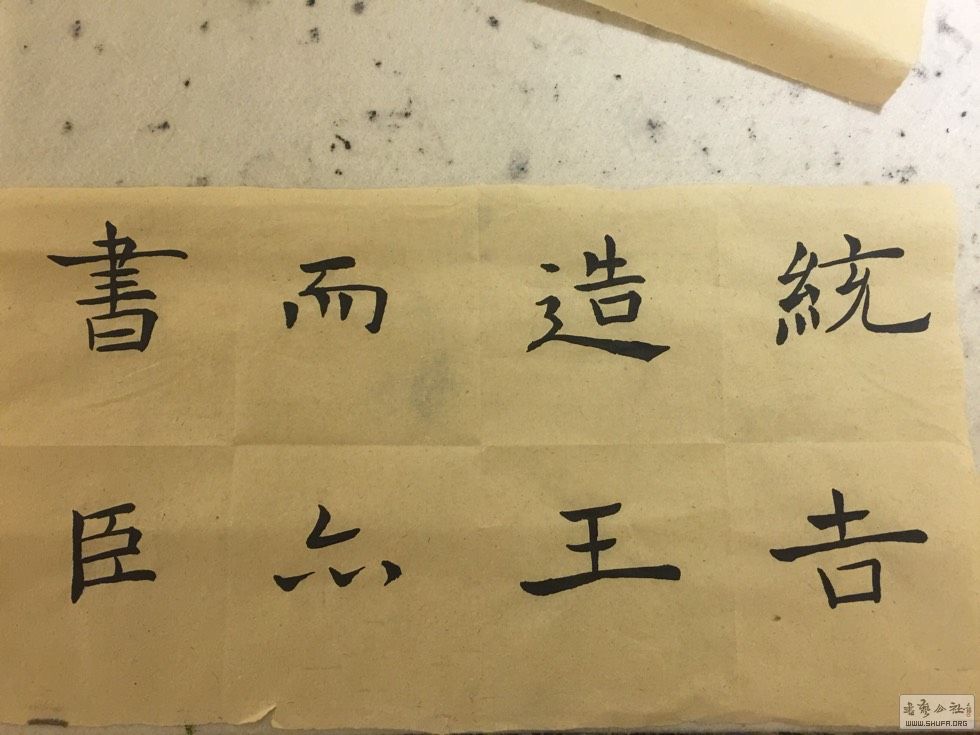 統吉
造王
而
書臣
书艺公社
WWW.SHUFA.ORG